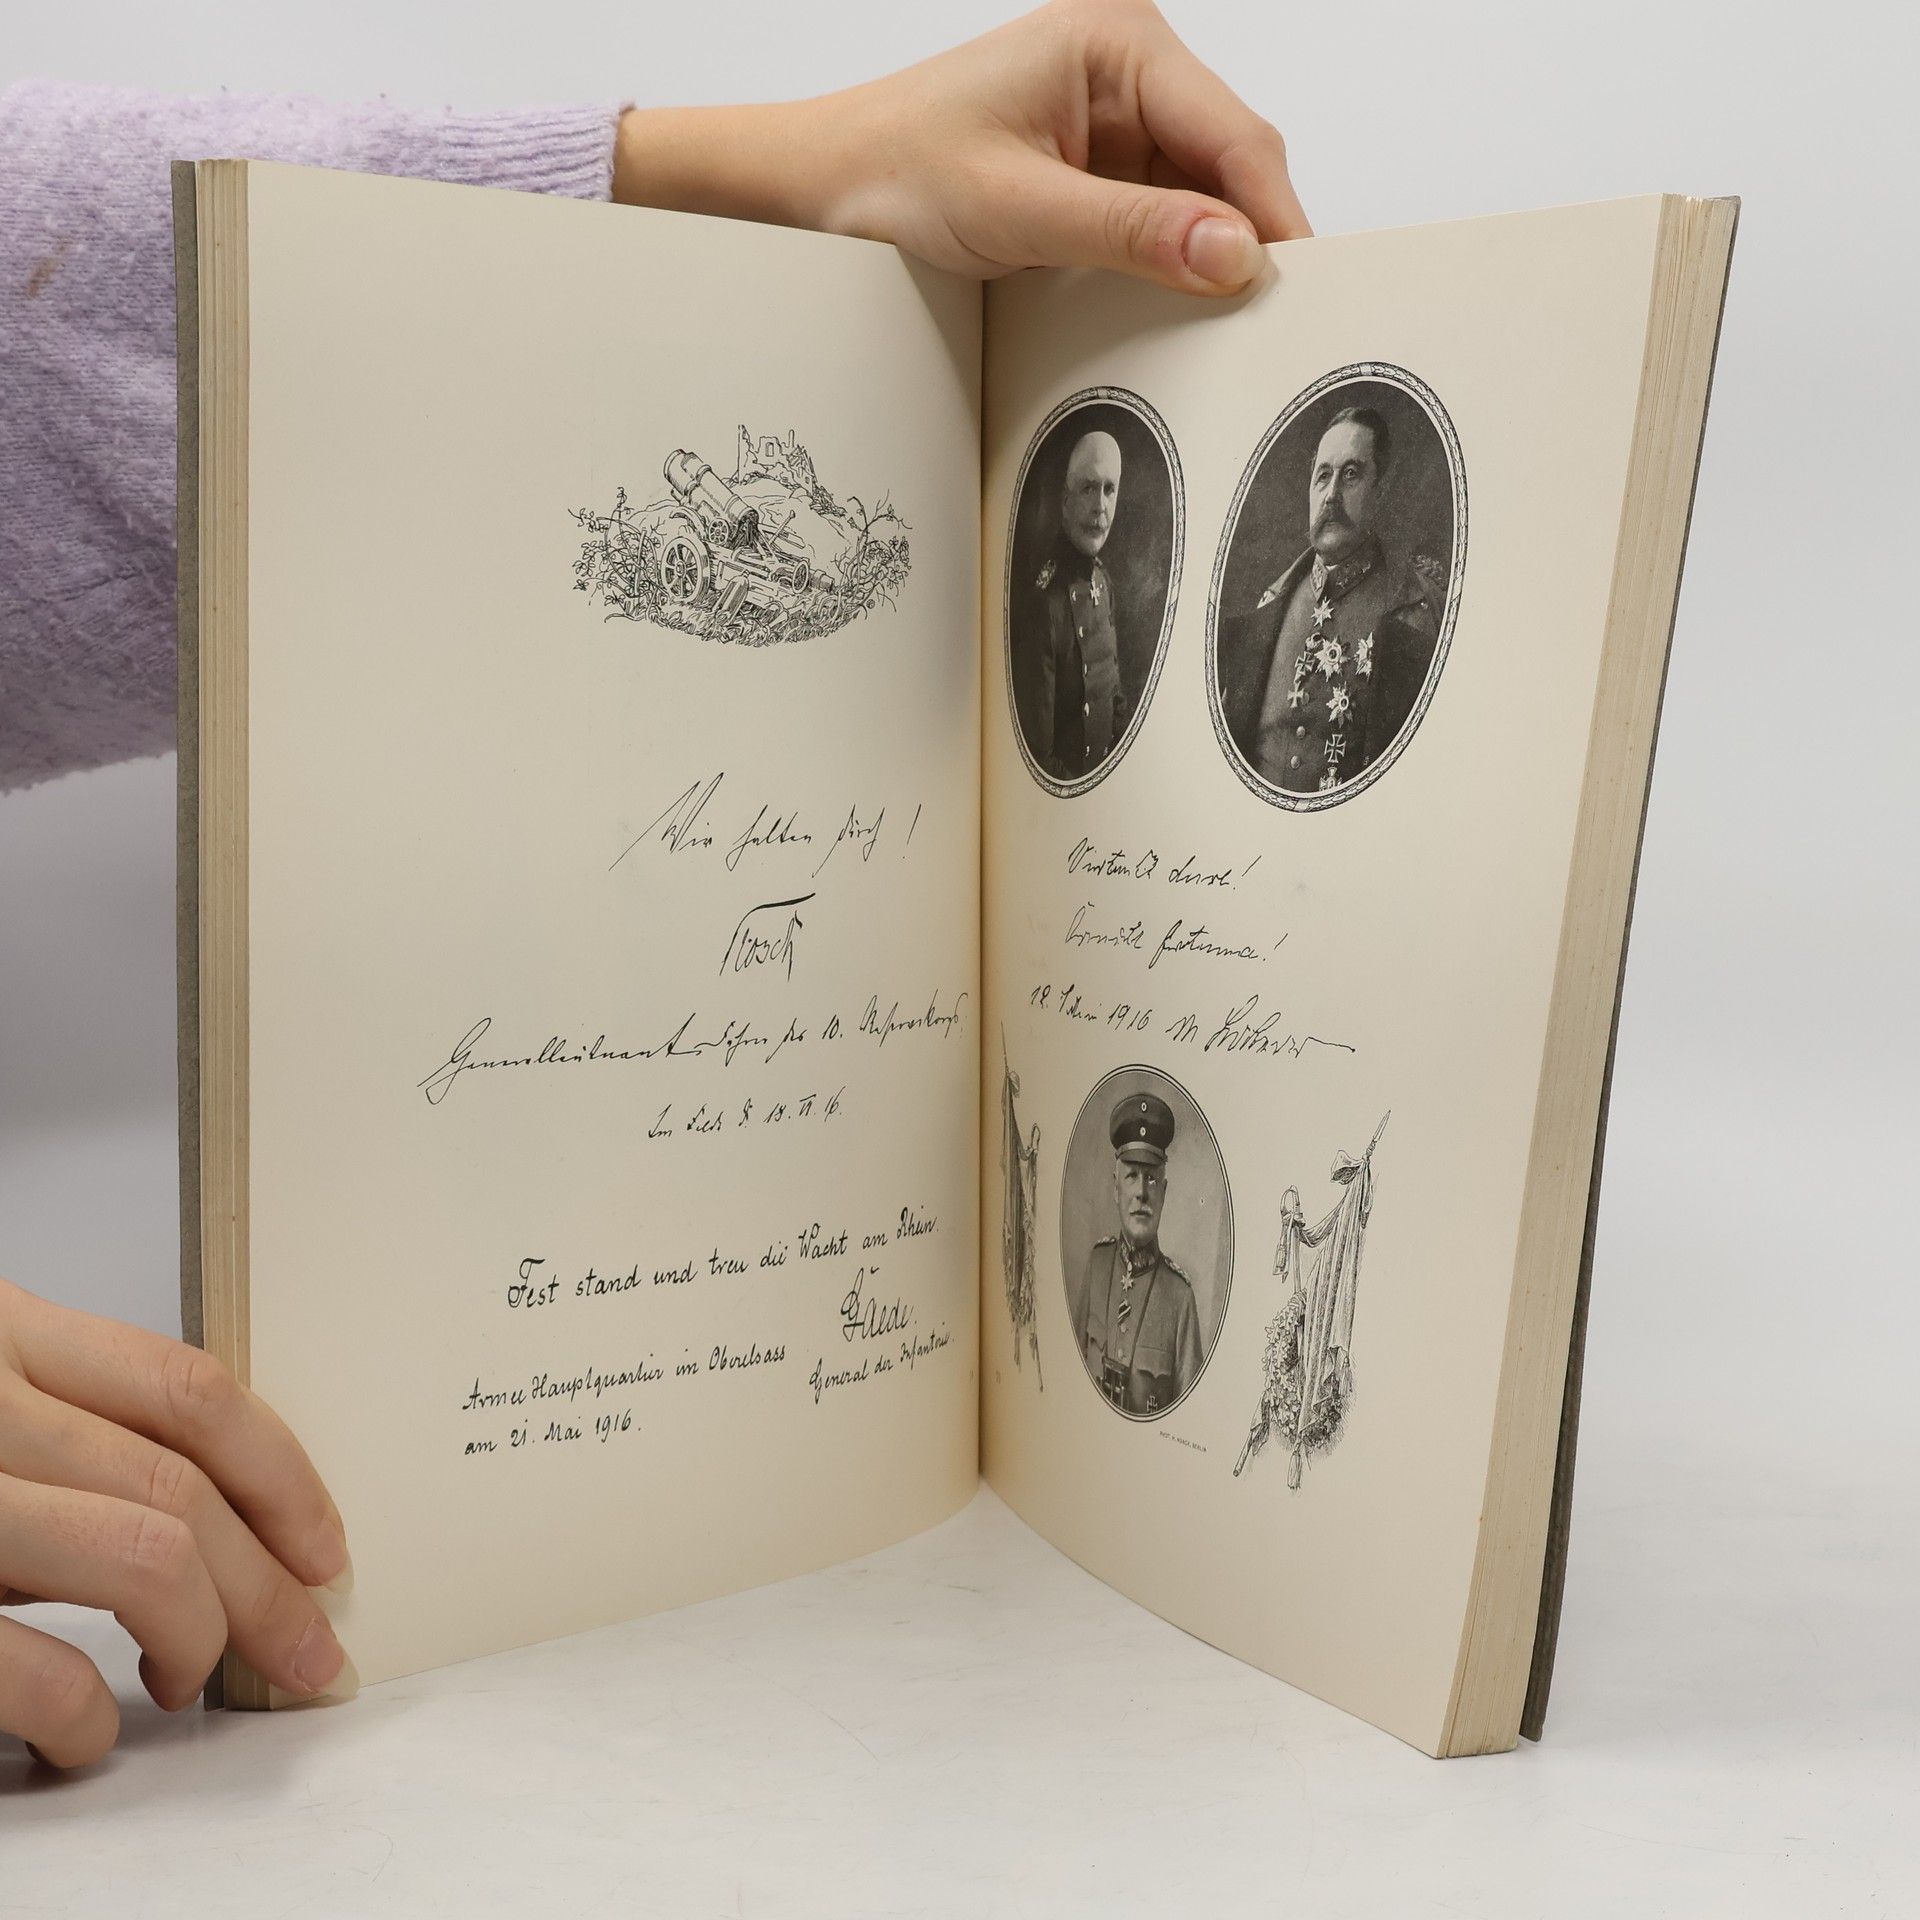 Wir halten durch!
Kosch
Generalleutnant Führer des 10. Reservekorps.
Im Felde d. 18. VI. 16.
Fest stand und treu die Wacht am Rhein.
Gaede.
General der Infanterie.
Armee Hauptquartier im Oberelsass
am 21. Mai 1916.
duce!
fortuna!
1916
PHOT. H. NOACK, BERLIN